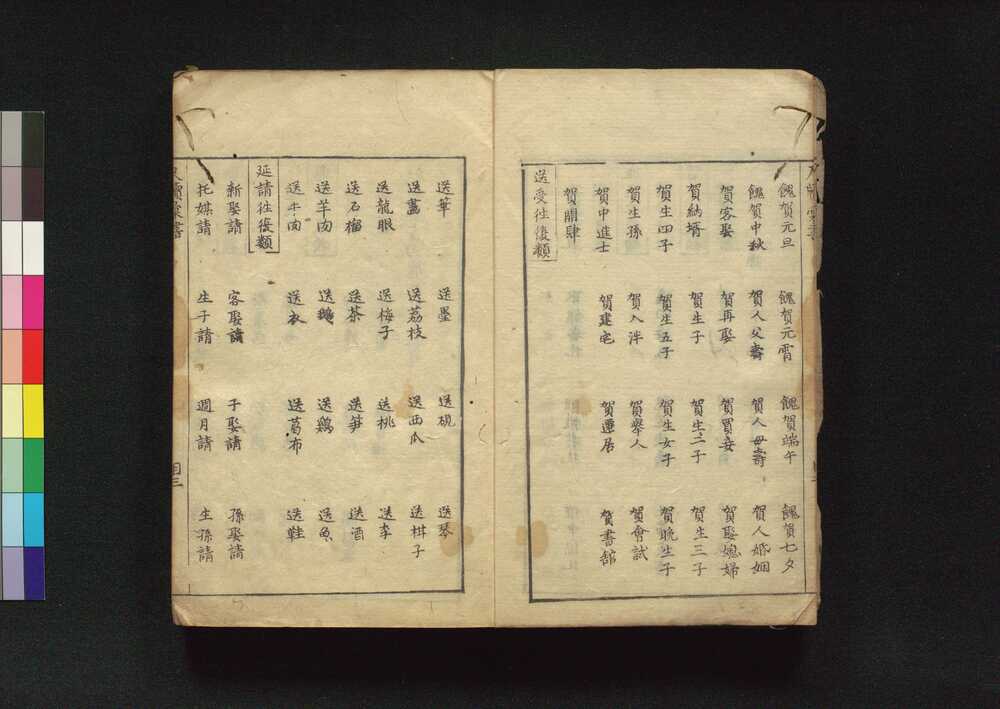 餽賀元旦 餽賀元宵 餽賀端午 餽賀七夕
餽賀中秋 賀人父壽 賀人母壽 賀人婚姻
賀客娶 賀再娶 賀買妾 賀娶媳婦
賀納壻 賀生子 賀生二子 賀生三子
賀生四子 賀生五子 賀生女子 賀晚生子
賀生孫 賀入泮 賀舉人 賀會試
賀中進士 賀建宅 賀遷居 賀書舘
賀開肆
送受往復類
送筆 送墨 送硯 送琴
送畫 送荔枝 送西瓜 送柑子
送龍眼 送梅子 送桃 送李
送石榴 送茶 送笋 送酒
送羊肉 送鵝 送鷄 送魚
送牛肉 送衣 送葛布 送鞋
延請往復類
新娶請 客娶請 子娶請 孫娶請
托媒請 生子請 週月請 生孫請
目三